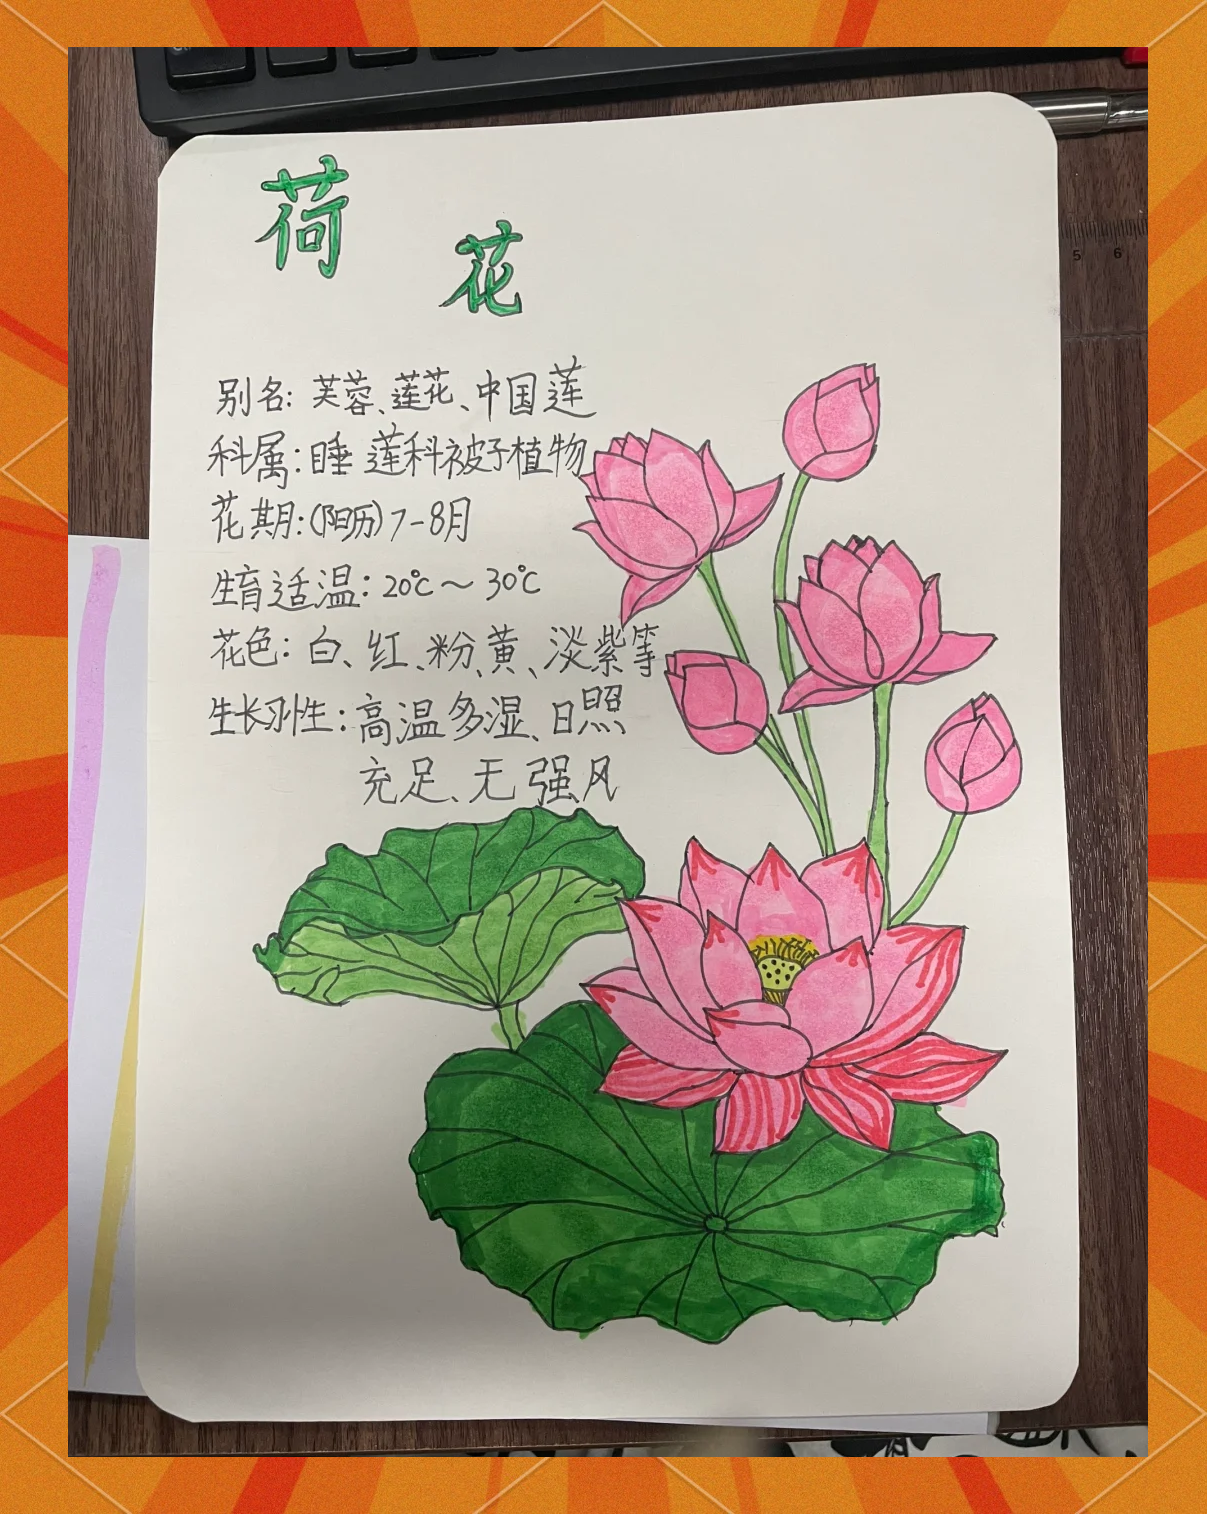 荷花
别名：芙蓉、莲花、中国莲
科属：睡莲科被子植物
花期：(阳历)7-8月
生育适温：20℃～30℃
花色：白、红、粉、黄、淡紫等
生长习性：高温多湿、日照
充足、无强风
5 6